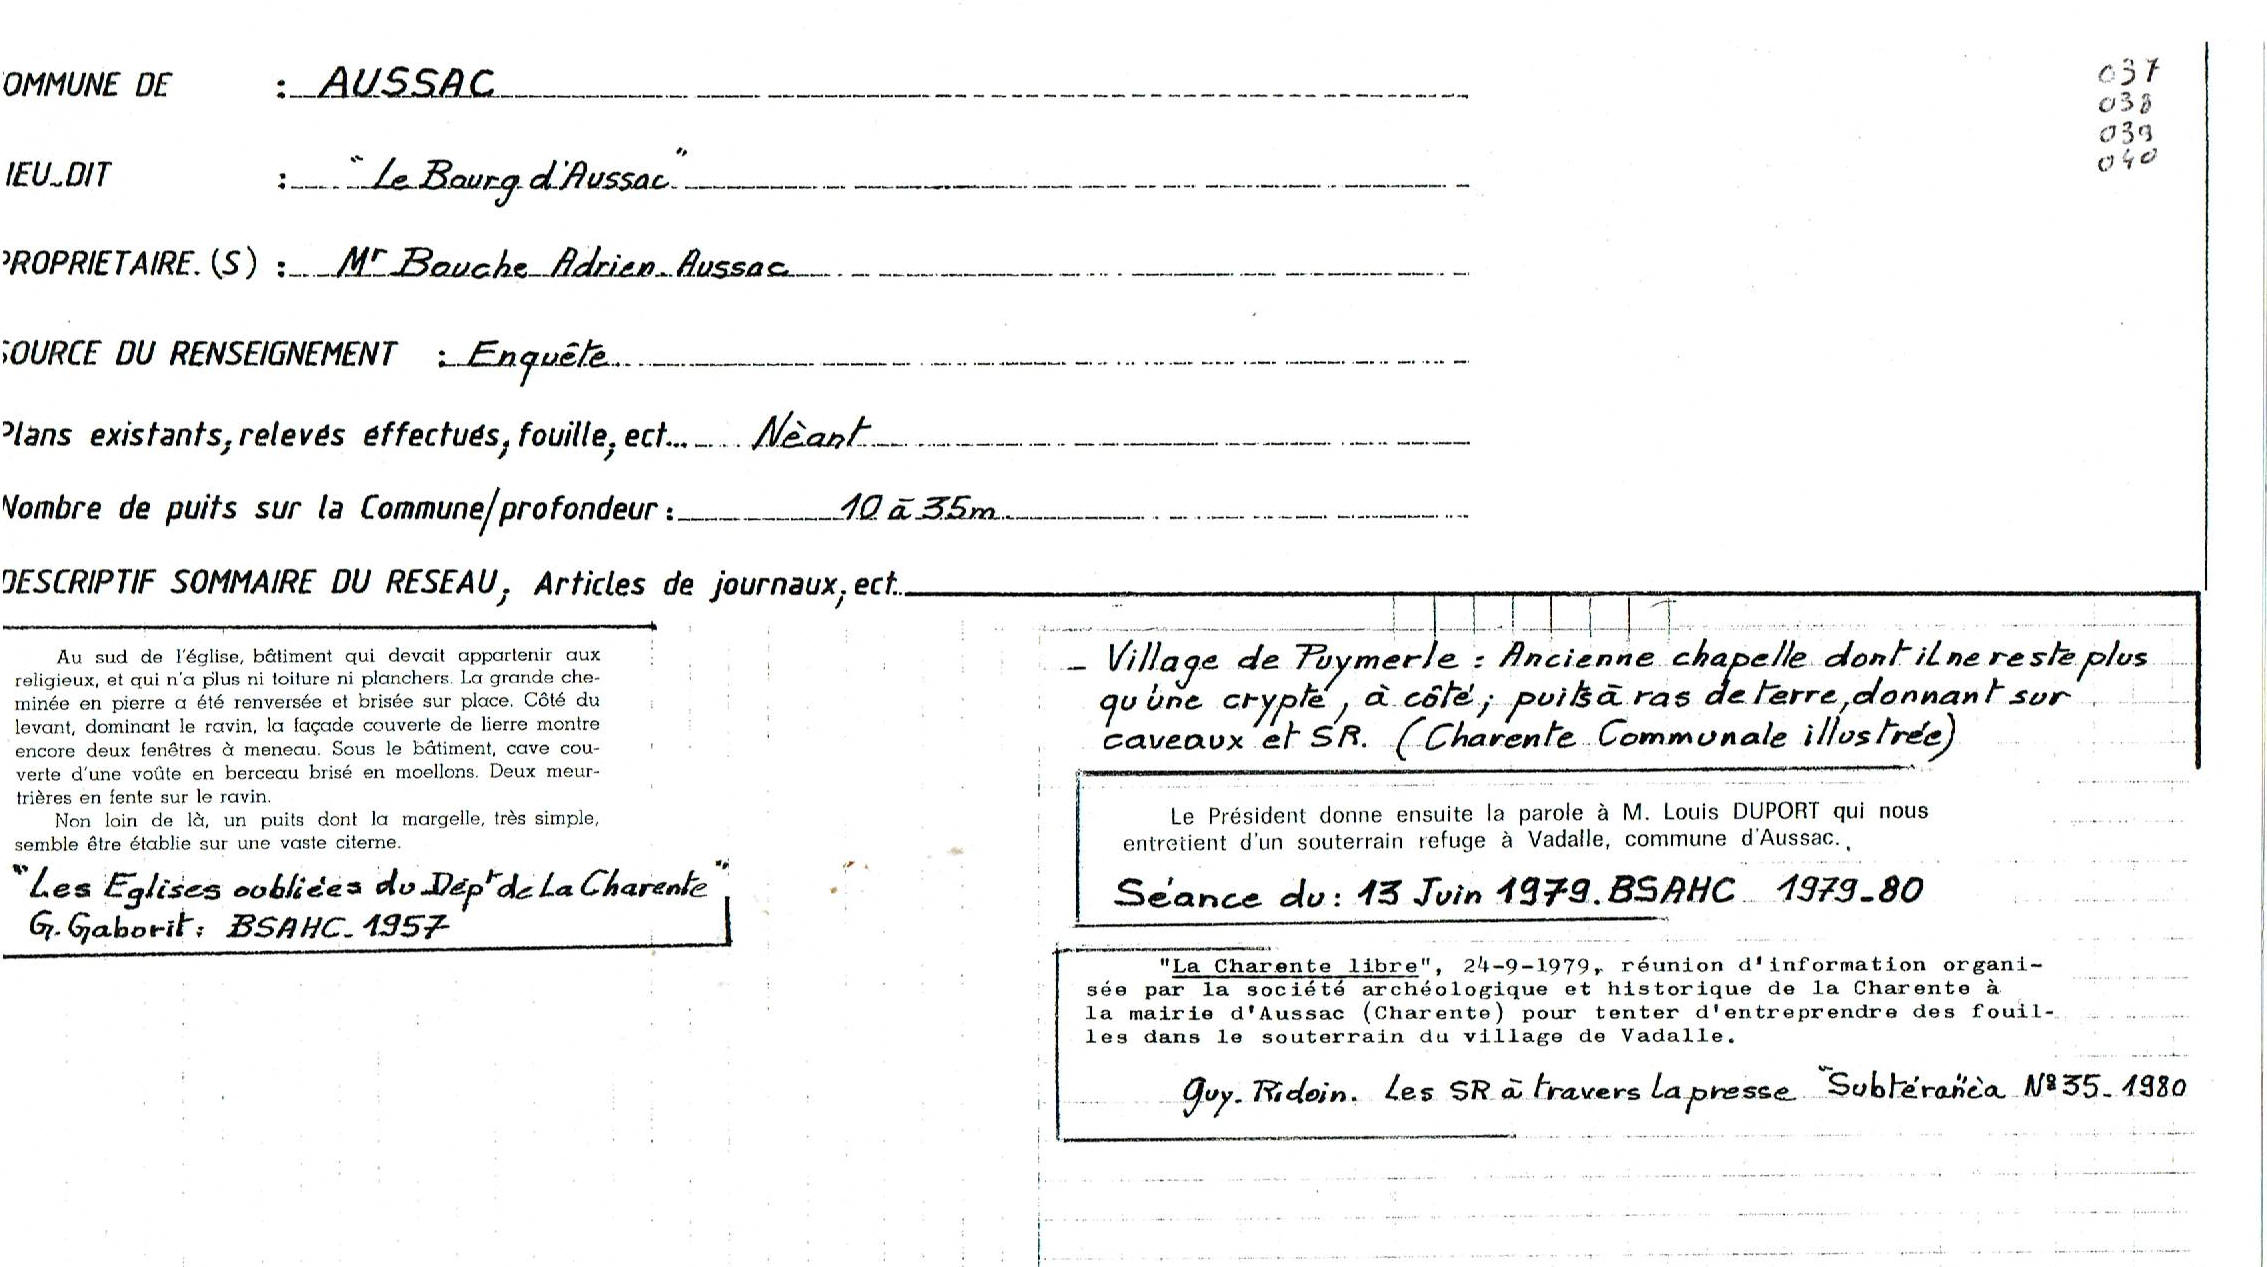 OMMUNE DE : AUSSAC
037
038
039
040
IEU_DIT : "Le Bourg d'Aussac"
PROPRIETAIRE.(S) : Mr Bouche Adrien Aussac
SOURCE DU RENSEIGNEMENT : Enquête
Plans existants, relevés éffectués, fouille, ect... Nèant
Nombre de puits sur la Commune/profondeur : 10 à 35m
DESCRIPTIF SOMMAIRE DU RESEAU, Articles de journaux, ect..
Au sud de l'église, bâtiment qui devait appartenir aux
religieux, et qui n'a plus ni toiture ni planchers. La grande che-
minée en pierre a été renversée et brisée sur place. Côté du
levant, dominant le ravin, la façade couverte de lierre montre
encore deux fenêtres à meneau. Sous le bâtiment, cave cou-
verte d'une voûte en berceau brisé en moellons. Deux meur-
trières en fente sur le ravin.
Non loin de là, un puits dont la margelle, très simple,
semble être établie sur une vaste citerne.
"Les Eglises oubliées du Dépt de La Charente"
G. Gaborit : BSAHC_1957
_ Village de Puymerle : Ancienne chapelle dont il ne reste plus
qu'une crypte, à côté ; puits à ras de terre, donnant sur
caveaux et SR. (Charente Communale illustrée)
Le Président donne ensuite la parole à M. Louis DUPORT qui nous
entretient d'un souterrain refuge à Vadalle, commune d'Aussac.
Séance du : 13 Juin 1979. BSAHC 1979_80
"La Charente libre", 24-9-1979, réunion d'information organi-
sée par la société archéologique et historique de la Charente à
la mairie d'Aussac (Charente) pour tenter d'entreprendre des fouil-
les dans le souterrain du village de Vadalle.
Guy. Ridoin. Les SR à travers La presse "Subtéranèa" Nº 35_1980